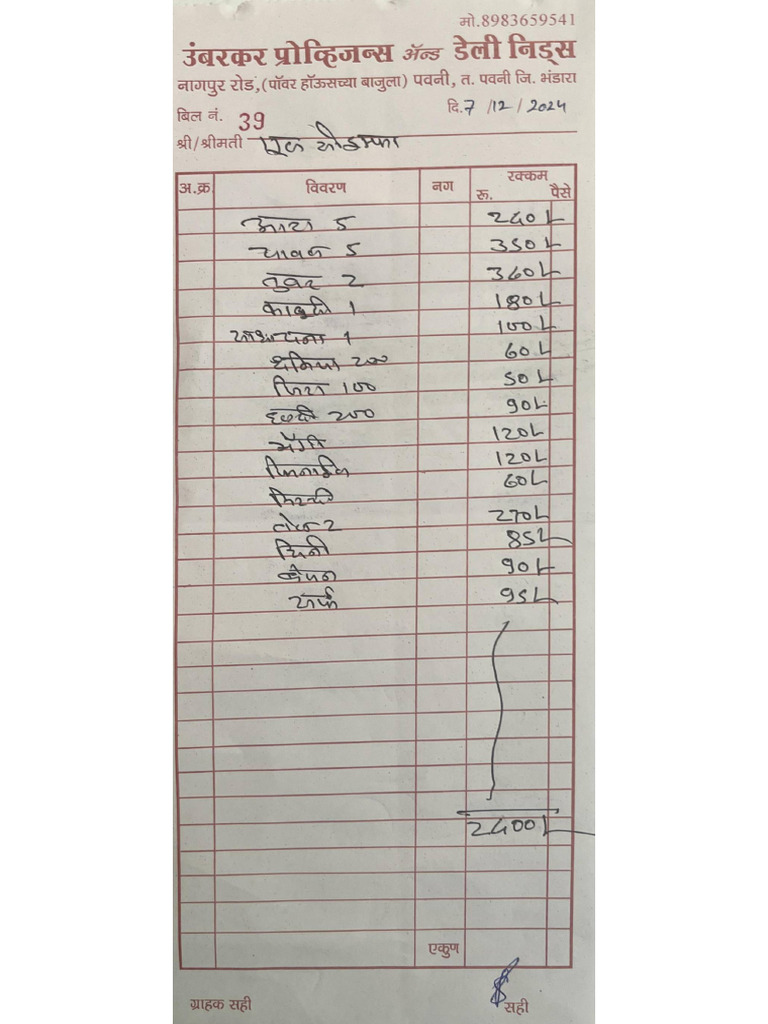 मो.8983659541
उंबरकर प्रोव्हिजन्स ॲन्ड डेली निड्स
नागपुर रोड,(पॉवर हॉऊसच्या बाजुला) पवनी, त. पवनी जि. भंडारा
बिल नं. 39 दि.7/12/2024
श्री/श्रीमती
अ.क्र. विवरण नग रक्कम
रू. पैसे
आटा 5 250/-
चावल 5 350/-
तुवर 2 360/-
काबुली 1 180/-
1 100/-
धनिया 200 60/-
जिरा 100 50/-
हळदी 200 90/-
मॅगी 120/-
फिनाईल 120/-
मिरची 60/-
तेल 2 270/-
चिनी 85/-
बेसन 90/-
सर्फ 95/-
2400/-
एकुण
ग्राहक सही सही